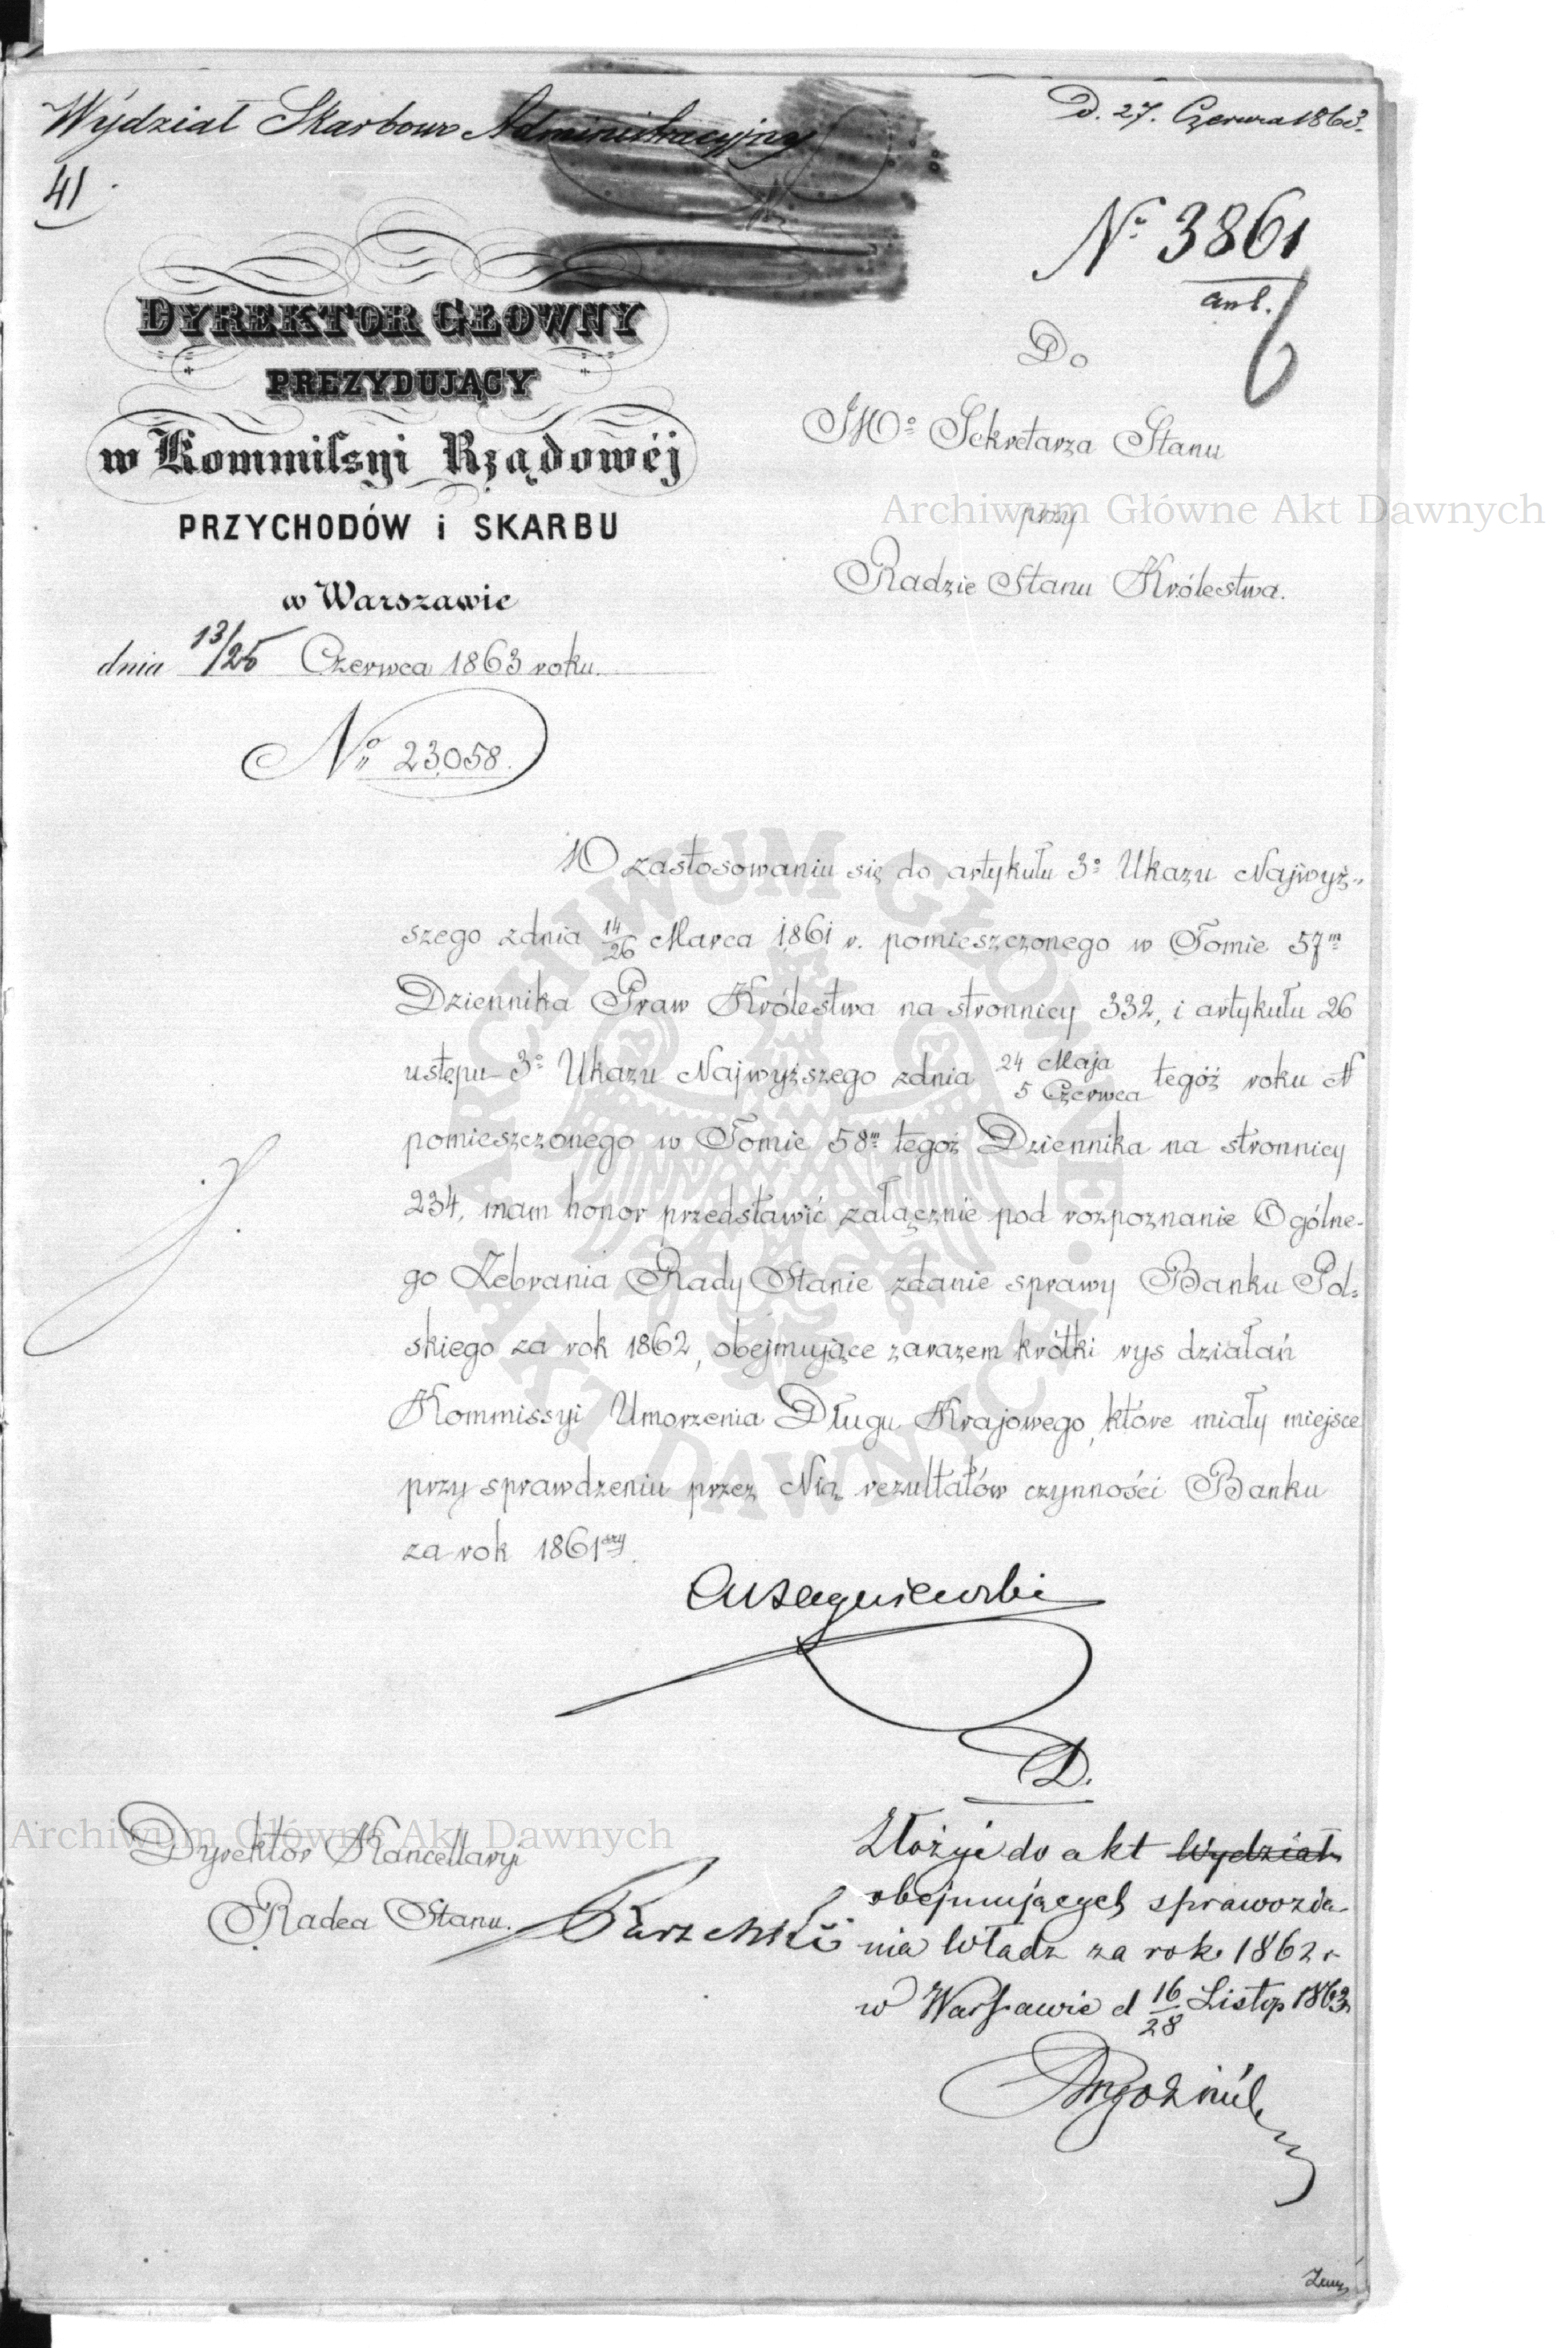 Wydział Skarbowo Administracyjny
D. 27. Czerwca 1863.
41
Nº 3861
6
DYREKTOR GŁOWNY
PREZYDUJĄCY
w Kommissyi Rządowéj
PRZYCHODÓW i SKARBU
w Warszawie
dnia 13/25 Czerwca 1863 roku.
Nº 23,058.
Do
JWº Sekretarza Stanu
przy
Radzie Stanu Królestwa.
Archiwum Główne Akt Dawnych
W zastosowaniu się do artykułu 3º Ukazu Najwyż-
szego z dnia 14/26 Marca 1861 r. pomieszczonego w Tomie 57m
Dziennika Praw Królestwa na stronnicy 332, i artykułu 26
ustępu 3º Ukazu Najwyższego z dnia 24 Maja / 5 Czerwca tegoż roku
pomieszczonego w Tomie 58m tegoż Dziennika na stronnicy
234, mam honor przedstawić załącznie pod rozpoznanie Ogólne-
go Zebrania Rady Stanie zdanie sprawy Banku Pol-
skiego za rok 1862, obejmujące zarazem krótki rys działań
Kommissyi Umorzenia Długu Krajowego, które miały miejsce
przy sprawdzeniu przez Nią rezultatów czynności Banku
za rok 1861szy.
ARCHIWUM GŁÓWNE AKT DAWNYCH
D.
Archiwum Główne Akt Dawnych
Dyrektor Kancellaryi
Radca Stanu.
Złożyć do akt Wydział
obejmujących sprawozda-
nia Władz za rok 1862 r
w Warszawie d 16/28 Listop 1863